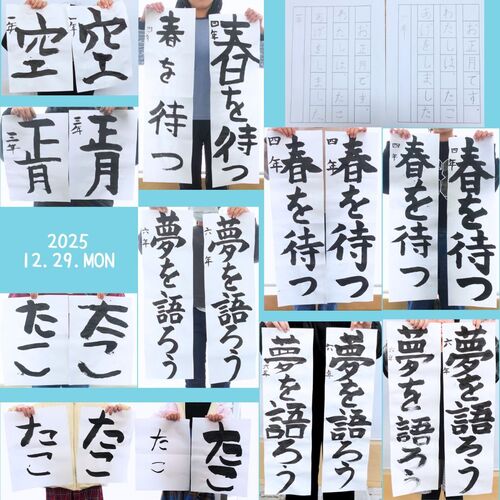 空
空
三年 正月
正月
四年 春を待つ
四年 春を待つ
お正月です。
四年 春を待つ
四年 春を待つ
四年 春を待つ
四年 春を待つ
2025
12.29.MON
六年 夢を語ろう
六年 夢を語ろう
たこ
たこ
たこ
たこ
たこ
たこ
六年 夢を語ろう
六年 夢を語ろう
夢を語ろう
夢を語ろう